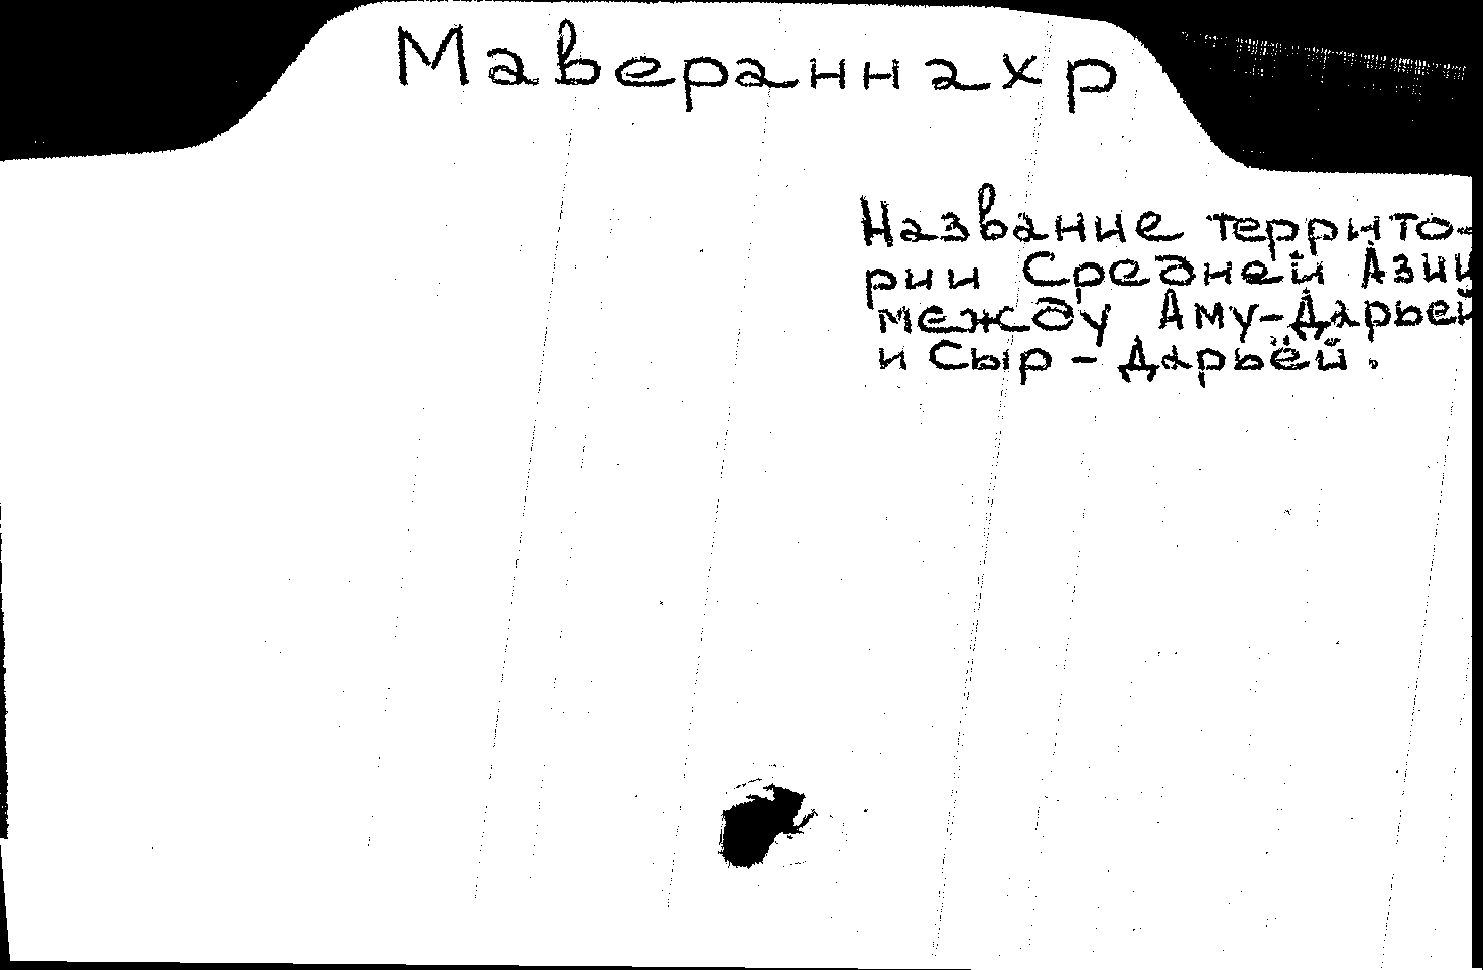 Мавераннахр
Название террито-
рии Средней Азии
между Аму-Дарьей
и Сыр-Дарьёй.